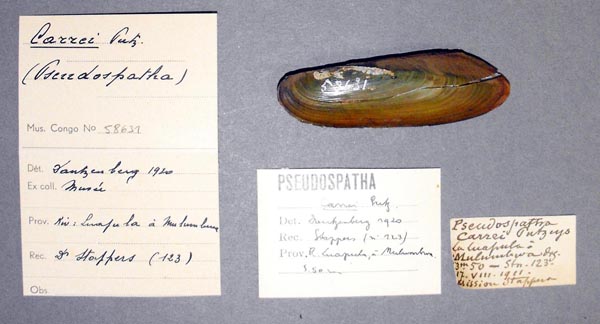 Carrei Putz.
(Pseudospatha)
Mus. Congo No 58631
Dét. Dautzenberg 1920
Ex coll. Musée
Prov. Riv: Luapula à Mulumbwa
Rec. Dr Stappers (123)
Obs.
58631
PSEUDOSPATHA
Carrei Putz.
Det. Dautzenberg 1920
Rec. Stappers (n° 123)
Prov. R. Luapula, à Mulumbwa
3.50 m
Pseudospatha
Carrei Putzeys
La Luapula à
Mulumbwa
3m50 - Stn. 123.
17.VIII.1911.
Mission Stappers